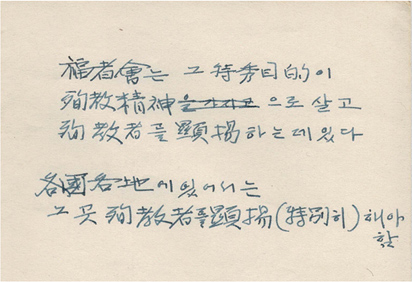 福者會는 그 特秀目的이
殉教精神을가지고 으로 살고
殉教者를 顯揚하는데 있다
各國各地에 있어서는
그 곳 殉教者를 顯揚(特別히)해야
함